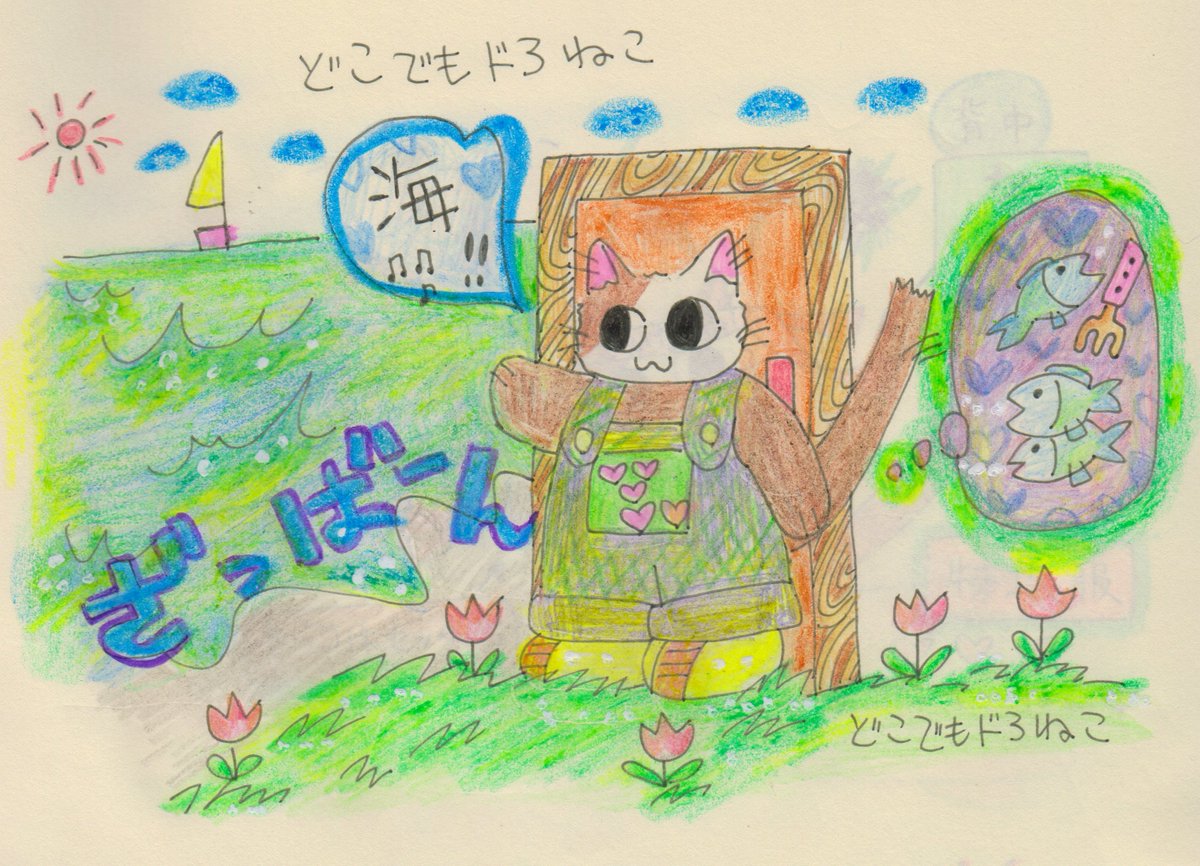 どこでもドろねこ
海
♫♫♪!!
ざっばーん
どこでもドろねこ